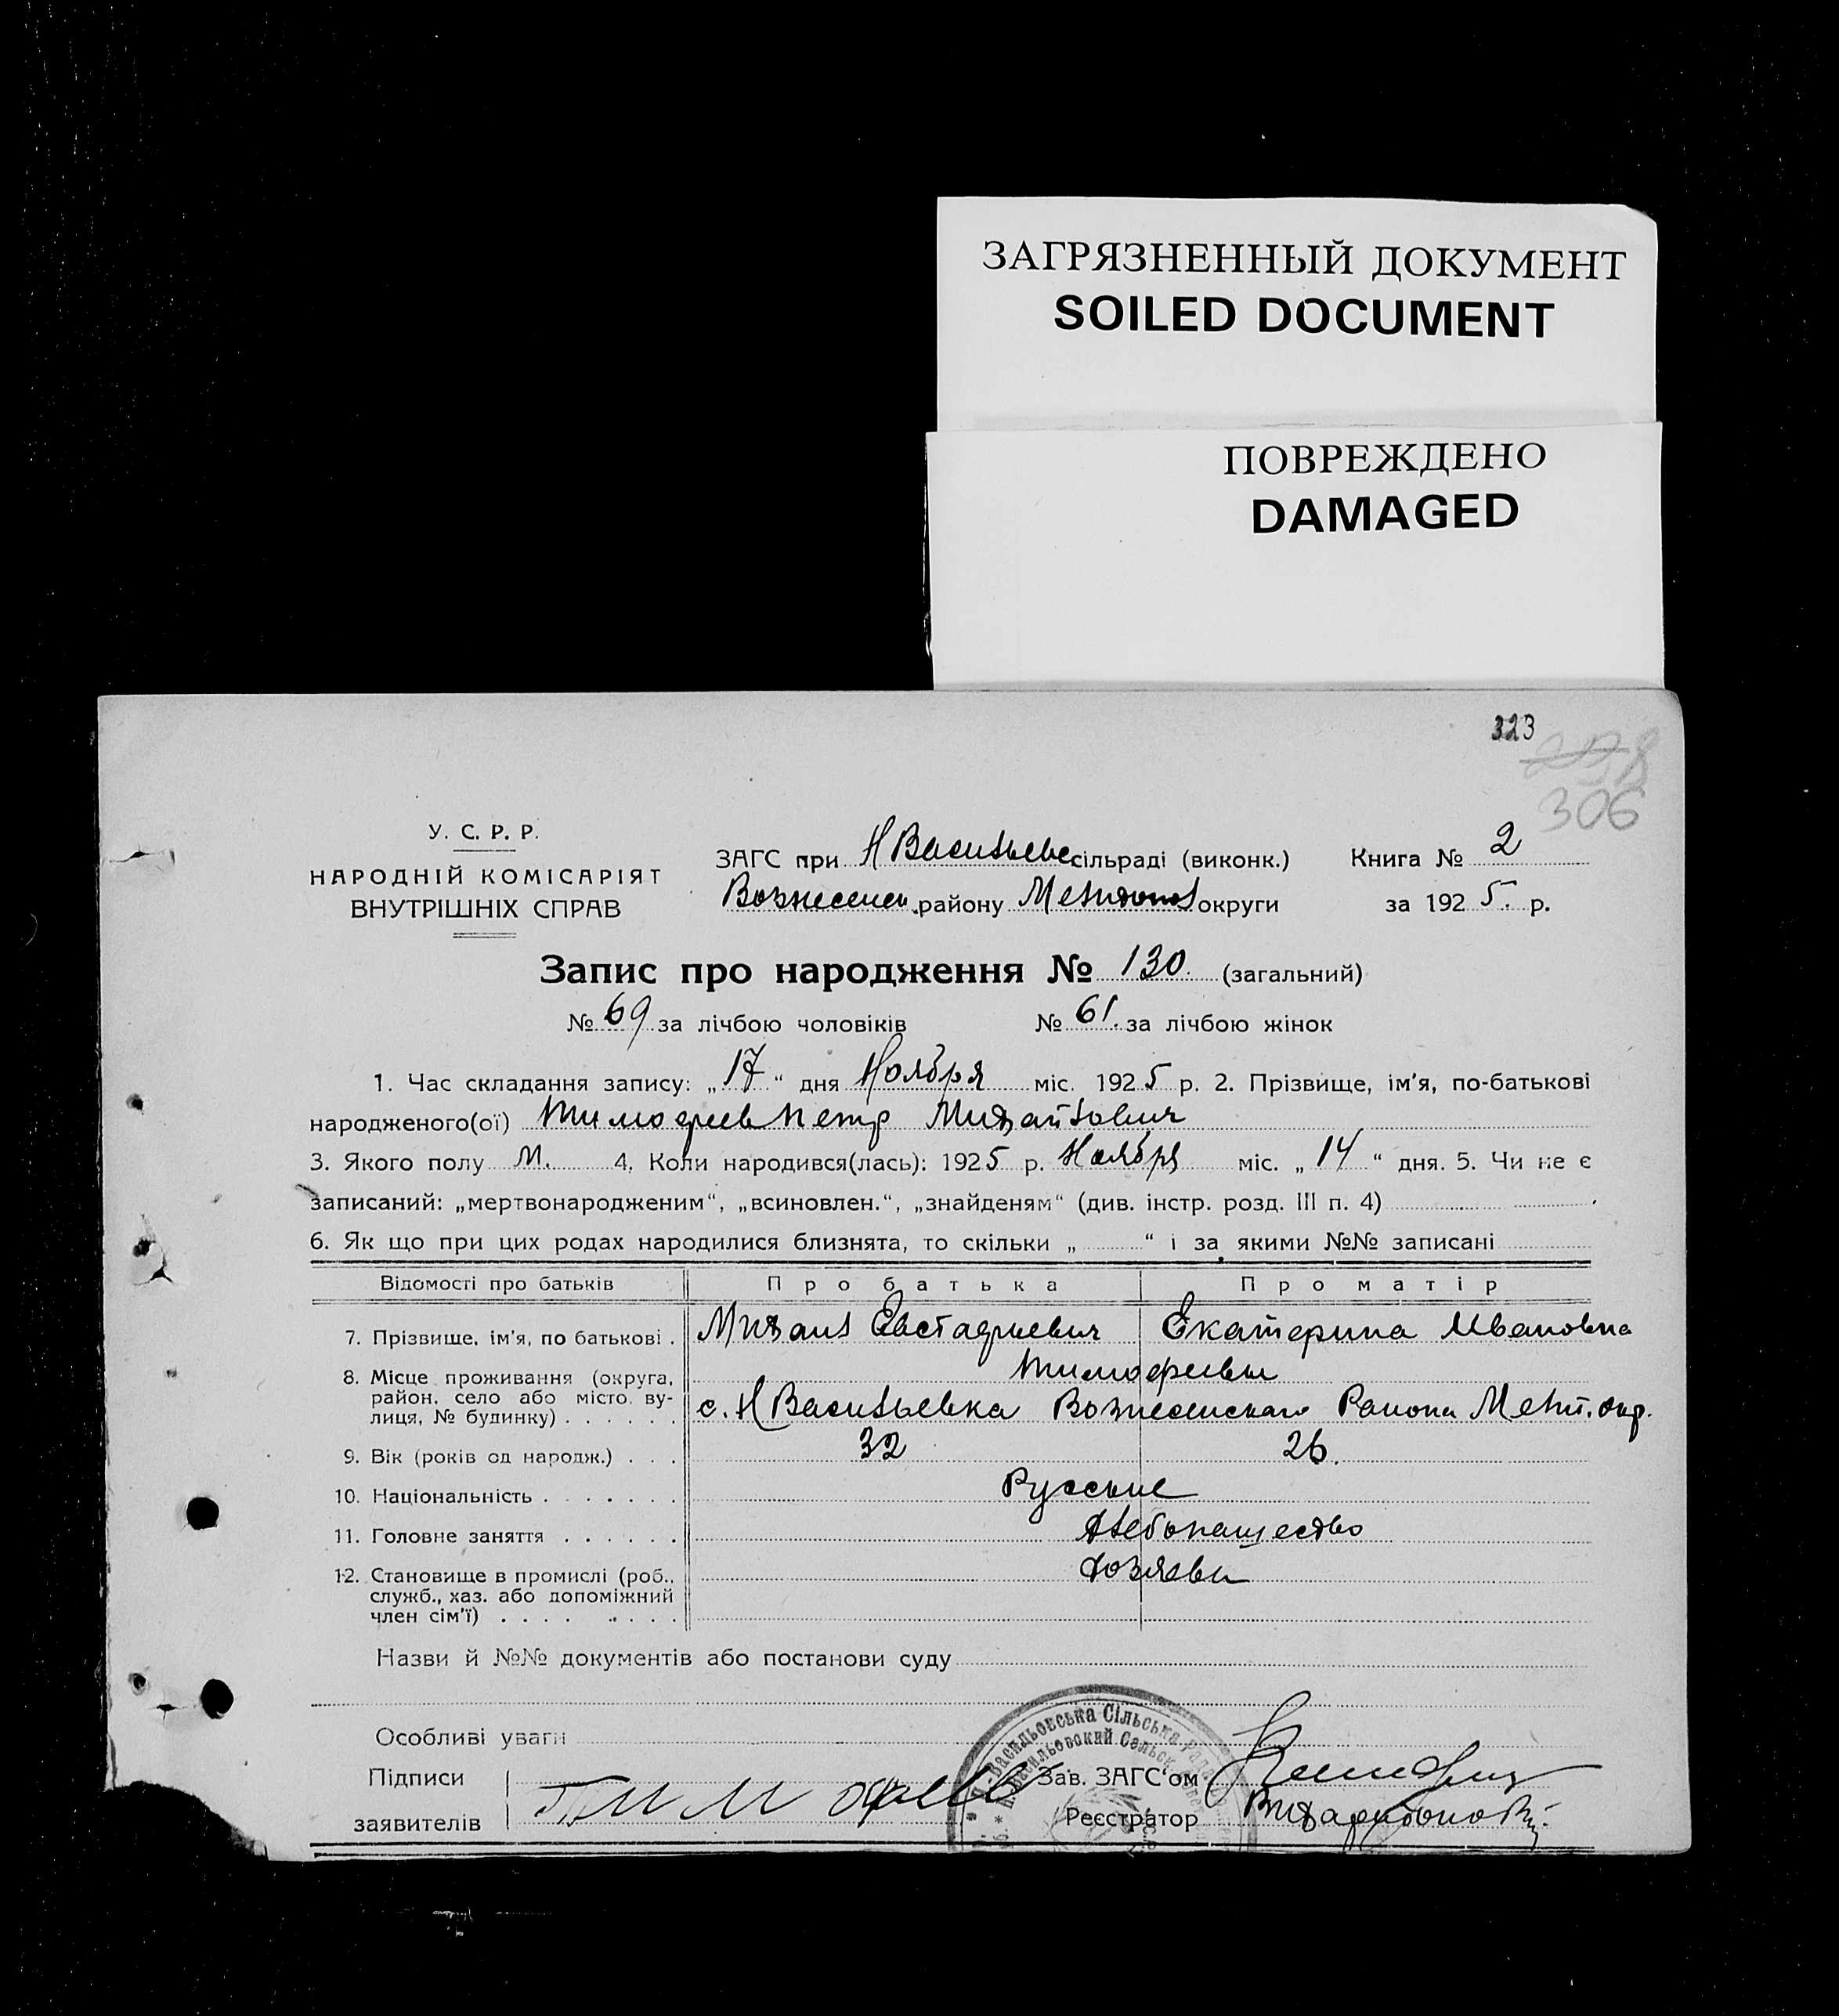 ЗАГРЯЗНЕННЫЙ ДОКУМЕНТ
SOILED DOCUMENT
ПОВРЕЖДЕНО
DAMAGED
323
306
У. С. Р. Р.
НАРОДНІЙ КОМІСАРІЯТ
ВНУТРІШНІХ СПРАВ
ЗАГС при Н Васильевс сільраді (виконк.) Книга № 2
Вознесенс. району Мелитопол округи за 192 5. р.
Запис про народження № 130. (загальний)
№ 69 за лічбою чоловіків № 61. за лічбою жінок
1. Час складання запису: „ 17 “ дня Ноября міс. 192 5 р. 2. Прізвище, ім'я, по-батькові
народженого(ої) Тимофеев Петр Михайлович
3. Якого полу М. 4. Коли народився(лась): 192 5 р. Ноября міс. „ 14 “ дня. 5. Чи не є
записаний: „мертвонародженим“, „всиновлен.“, „знайденям“ (див. інстр. розд. III п. 4)
6. Як що при цих родах народилися близнята, то скільки „ “ і за якими №№ записані
Відомості про батьків Про батька Про матір
7. Прізвище, ім'я, по батькові . Михаил Евстафиевич Екатерина Ивановна
Тимофеевы
8. Місце проживання (округа, район, село або місто, ву-
лиця, № будинку) . . . . . . с. Н Васильевка Вознесенскаго Района Мелит. окр.
9. Вік (років од народж.) . . . 32 26.
10. Національність . . . . . . . Русские
11. Головне заняття . . . . . . Хлебопашество
12. Становище в промислі (роб., Хозяева
служб., хаз. або допоміжний
член сім'ї) . . . . . . . .
Назви й №№ документів або постанови суду
Особливі уваги
Підписи
заявителів Тимофеев
Зав. ЗАГС'ом
Реєстратор
Н.-Васильовська Сільська Рада
Н.-Васильовский Сельск.